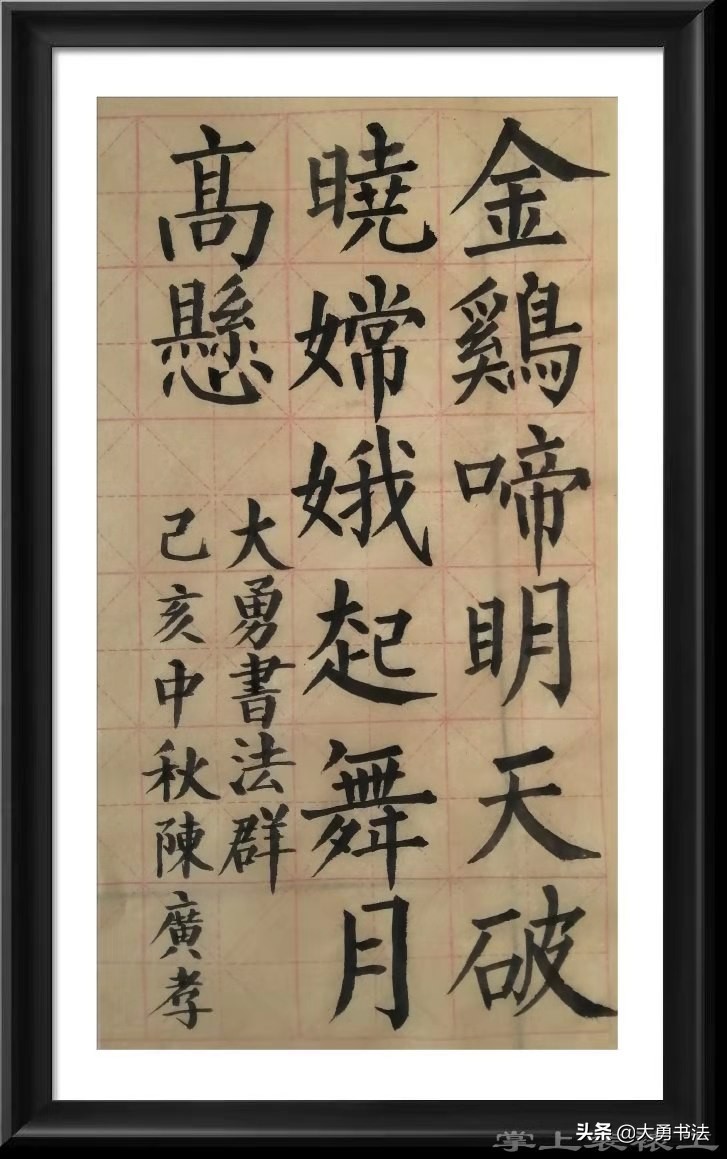 金鷄啼明天破
曉嫦娥起舞月
高懸
大勇書法群
己亥中秋陳廣孝
掌上裝裱王
头条 @大勇书法